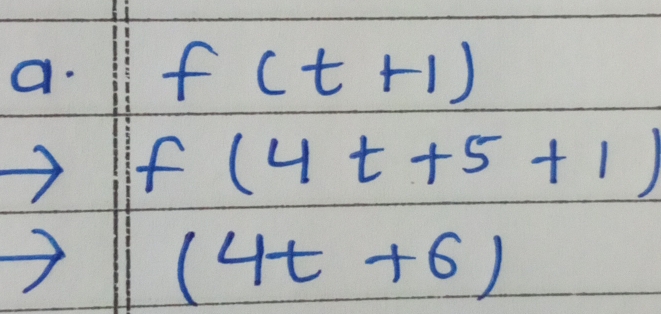 a. f (t +1)
→ f (4 t +5 +1)
→ (4t +6)